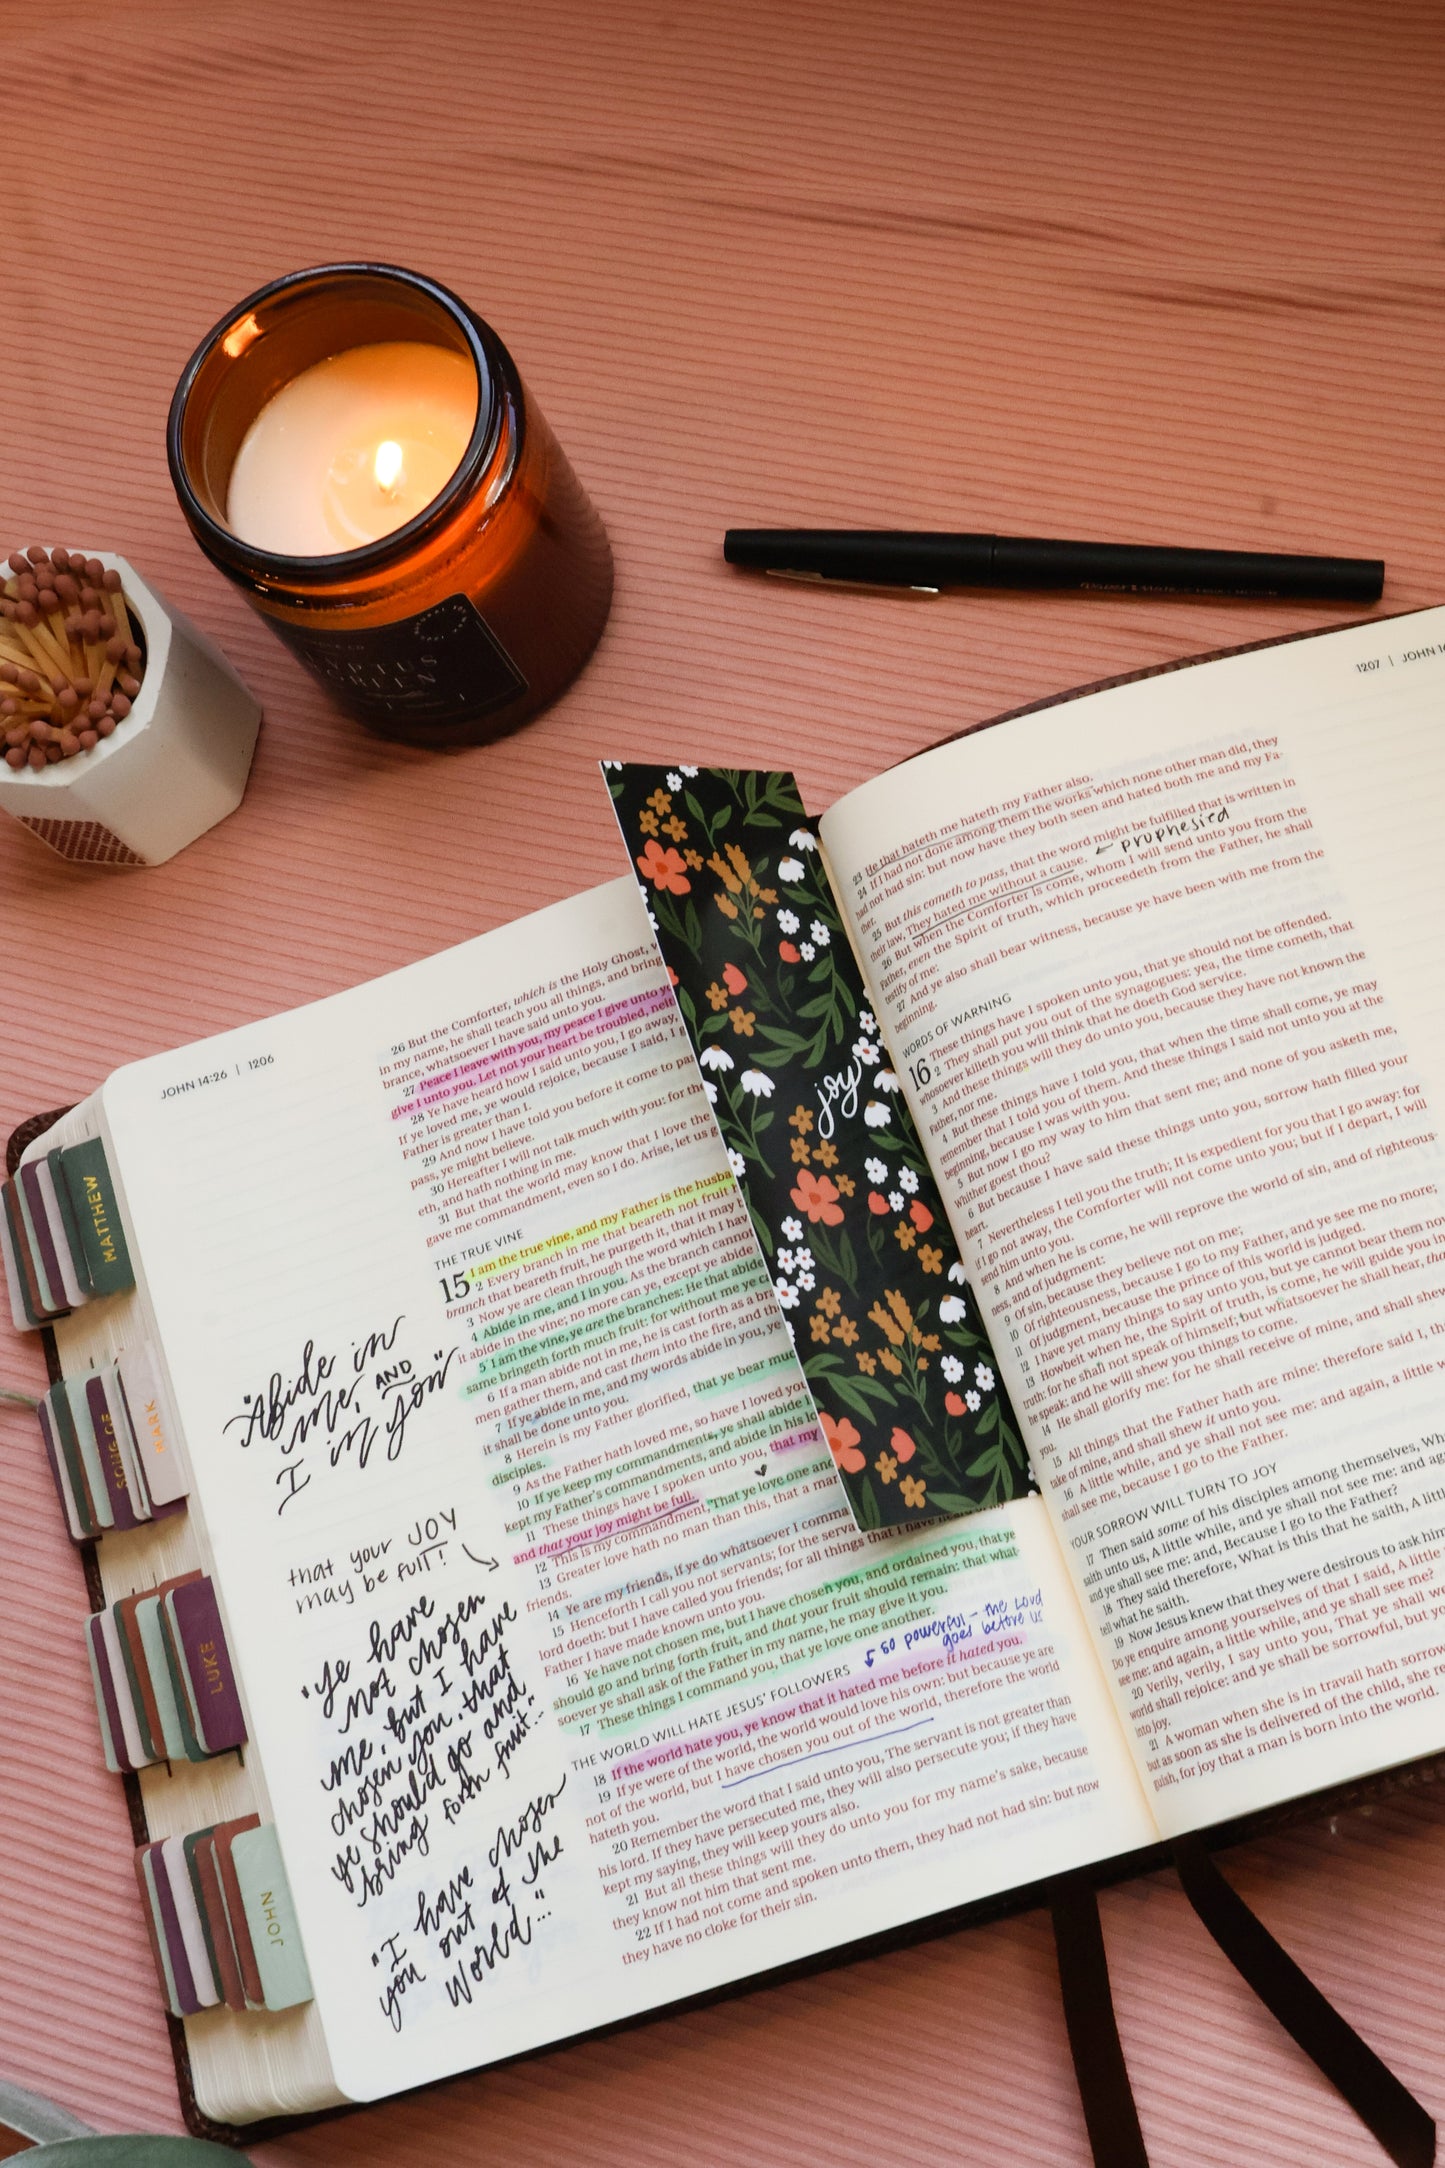 YPTUS
GREEN
joy
MATTHEW
SONG OF
MARK
LUKE
JOHN
JOHN 14:26 | 1206
"Abide in
me, AND
I in you"
that your JOY
may be full!
"ye have
not chosen
me, but I have
chosen you, that
ye should go and
bring forth fruit..."
"I have chosen
you out of the
World..."
26 But the Comforter, which is the Holy Ghost,
in my name, he shall teach you all things, and bring
brance, whatsoever I have said unto you.
27 Peace I leave with you, my peace I give unto
give I unto you. Let not your heart be troubled,
28 Ye have heard how I said unto you, I go away,
If ye loved me, ye would rejoice, because I said, I
Father is greater than I.
29 And now I have told you before it come to
pass, ye might believe.
30 Hereafter I will not talk much with you: for the
eth, and hath nothing in me.
31 But that the world may know that I love the
gave me commandment, even so I do. Arise, let us
THE TRUE VINE
15 I am the true vine, and my Father is the
2 Every branch in me that beareth not fruit
branch that beareth fruit, he purgeth it, that it may
3 Now ye are clean through the word which I
4 Abide in me, and I in you. As the branch cannot
it abide in the vine; no more can ye, except ye abide
5 I am the vine, ye are the branches: He that
same bringeth forth much fruit: for without me ye
6 If a man abide not in me, he is cast forth as a
men gather them, and cast them into the fire, and
7 If ye abide in me, and my words abide in you, ye
it shall be done unto you.
8 Herein is my Father glorified, that ye bear
disciples.
9 As the Father hath loved me, so have I loved
10 If ye keep my commandments, ye shall abide
kept my Father's commandments, and abide in his
11 These things have I spoken unto you, that my
and that your joy might be full.
12 This is my commandment, That ye love one
13 Greater love hath no man than this, that a
friends.
14 Ye are my friends, if ye do whatsoever I
15 Henceforth I call you not servants; for the
lord doeth: but I have called you friends; for all things that I have heard
Father I have made known unto you.
16 Ye have not chosen me, but I have chosen you, and ordained you, that ye
should go and bring forth fruit, and that your fruit should remain: that what-
soever ye shall ask of the Father in my name, he may give it you.
17 These things I command you, that ye love one another.
so powerful - the Lord
goes before us
THE WORLD WILL HATE JESUS' FOLLOWERS
18 If the world hate you, ye know that it hated me before it hated you.
19 If ye were of the world, the world would love his own: but because ye are
not of the world, but I have chosen you out of the world, therefore the world
hateth you.
20 Remember the word that I said unto you, The servant is not greater than
his lord. If they have persecuted me, they will also persecute you; if they have
kept my saying, they will keep yours also.
21 But all these things will they do unto you for my name's sake, because
they know not him that sent me.
22 If I had not come and spoken unto them, they had not had sin: but now
they have no cloke for their sin.
1207 | JOHN
23 He that hateth me hateth my Father also.
24 If I had not done among them the works which none other man did, they
had not had sin: but now have they both seen and hated both me and my Fa-
ther.
25 But this cometh to pass, that the word might be fulfilled that is written in
their law, They hated me without a cause.
prophesied
26 But when the Comforter is come, whom I will send unto you from the
Father, even the Spirit of truth, which proceedeth from the Father, he shall
testify of me:
27 And ye also shall bear witness, because ye have been with me from the
beginning.
WORDS OF WARNING
16 These things have I spoken unto you, that ye should not be offended.
2 They shall put you out of the synagogues: yea, the time cometh, that
whosoever killeth you will think that he doeth God service.
3 And these things will they do unto you, because they have not known the
Father, nor me.
4 But these things have I told you, that when the time shall come, ye may
remember that I told you of them. And these things I said not unto you at the
beginning, because I was with you.
5 But now I go my way to him that sent me; and none of you asketh me,
Whither goest thou?
6 But because I have said these things unto you, sorrow hath filled your
heart.
7 Nevertheless I tell you the truth; It is expedient for you that I go away: for
if I go not away, the Comforter will not come unto you; but if I depart, I will
send him unto you.
8 And when he is come, he will reprove the world of sin, and of righteous-
ness, and of judgment:
9 Of sin, because they believe not on me;
10 Of righteousness, because I go to my Father, and ye see me no more;
11 Of judgment, because the prince of this world is judged.
12 I have yet many things to say unto you, but ye cannot bear them
13 Howbeit when he, the Spirit of truth, is come, he will guide you
truth: for he shall not speak of himself; but whatsoever he shall hear,
he speak: and he will shew you things to come.
14 He shall glorify me: for he shall receive of mine, and shall
you.
15 All things that the Father hath are mine: therefore said I,
take of mine, and shall shew it unto you.
16 A little while, and ye shall not see me: and again, a little
shall see me, because I go to the Father.
YOUR SORROW WILL TURN TO JOY
17 Then said some of his disciples among themselves,
saith unto us, A little while, and ye shall not see me: and
and ye shall see me: and, Because I go to the Father?
18 They said therefore, What is this that he saith, A
tell what he saith.
19 Now Jesus knew that they were desirous to ask
Do ye enquire among yourselves of that I said, A little
see me: and again, a little while, and ye shall see me?
20 Verily, verily, I say unto you, That ye shall
world shall rejoice: and ye shall be sorrowful, but
into joy.
21 A woman when she is in travail hath
but as soon as she is delivered of the child, she
guish, for joy that a man is born into the world.